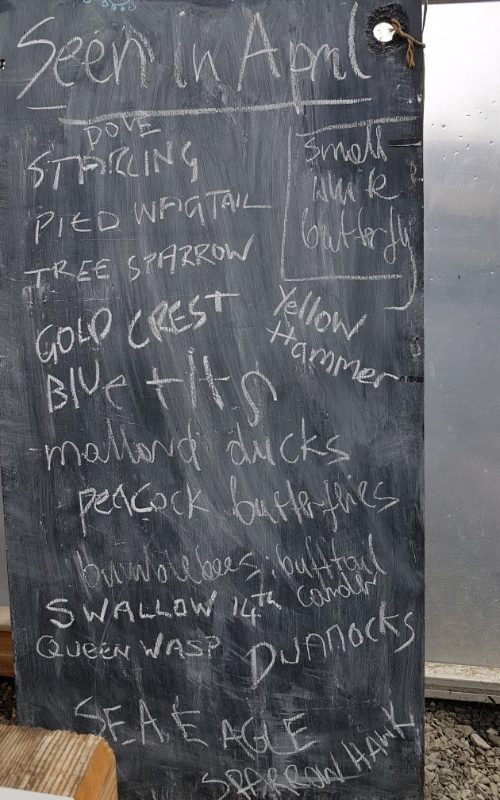 Seen In April
DOVE
STARLING
small
white
butterfly
PIED WAGTAIL
TREE SPARROW
GOLD CREST
Yellow
Hammer
BLUE tits
mallard ducks
peacock butterflies
bumblebees: bufftail
carder
SWALLOW 14th
QUEEN WASP
DUNNOCKS
SEA EAGLE
SPARROW HAWK